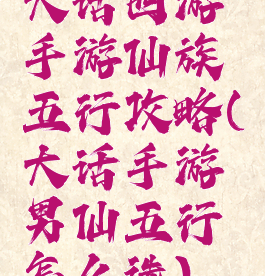 大话西游
手游仙族
五行攻略(
大话手游
男仙五行
怎么选)